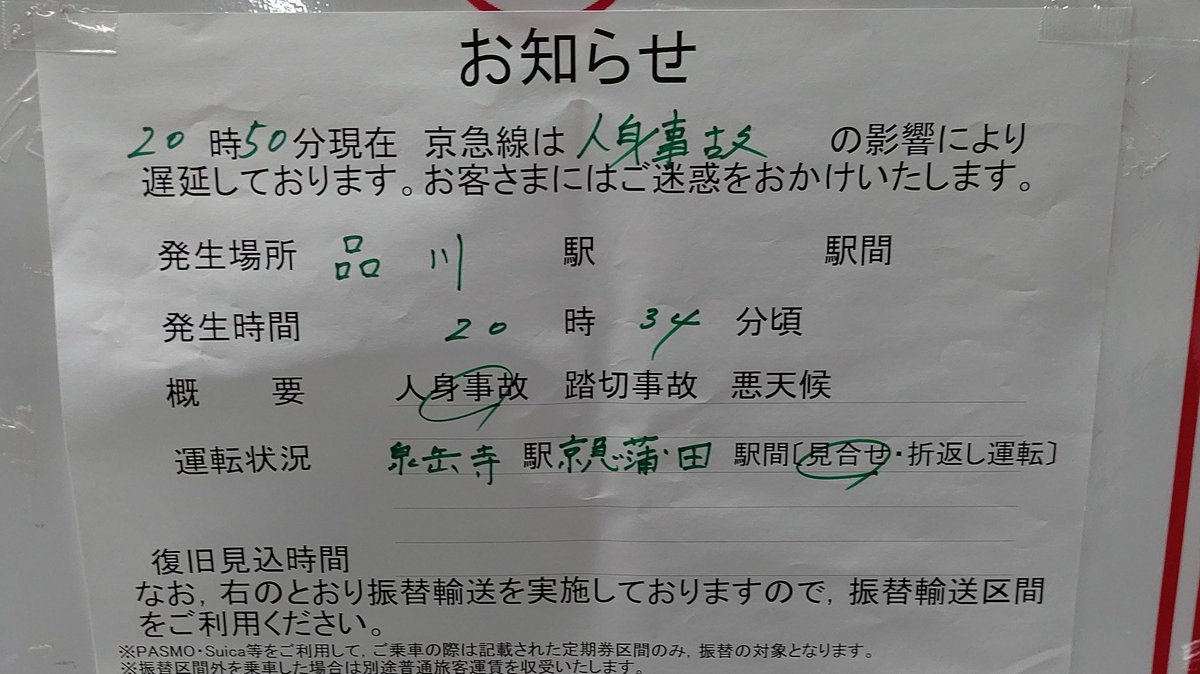 お知らせ
20時50分現在 京急線は人身事故 の影響により
遅延しております。お客さまにはご迷惑をおかけいたします。
発生場所 品川 駅 駅間
発生時間 20 時 34 分頃
概 要 人身事故 踏切事故 悪天候
運転状況 泉岳寺 駅 京急蒲田 駅間〔見合せ・折返し運転〕
復旧見込時間
なお，右のとおり振替輸送を実施しておりますので，振替輸送区間
をご利用ください。
※PASMO・Suica等をご利用して，ご乗車の際は記載された定期券区間のみ，振替の対象となります。
※振替区間外を乗車した場合は別途普通旅客運賃を収受いたします。